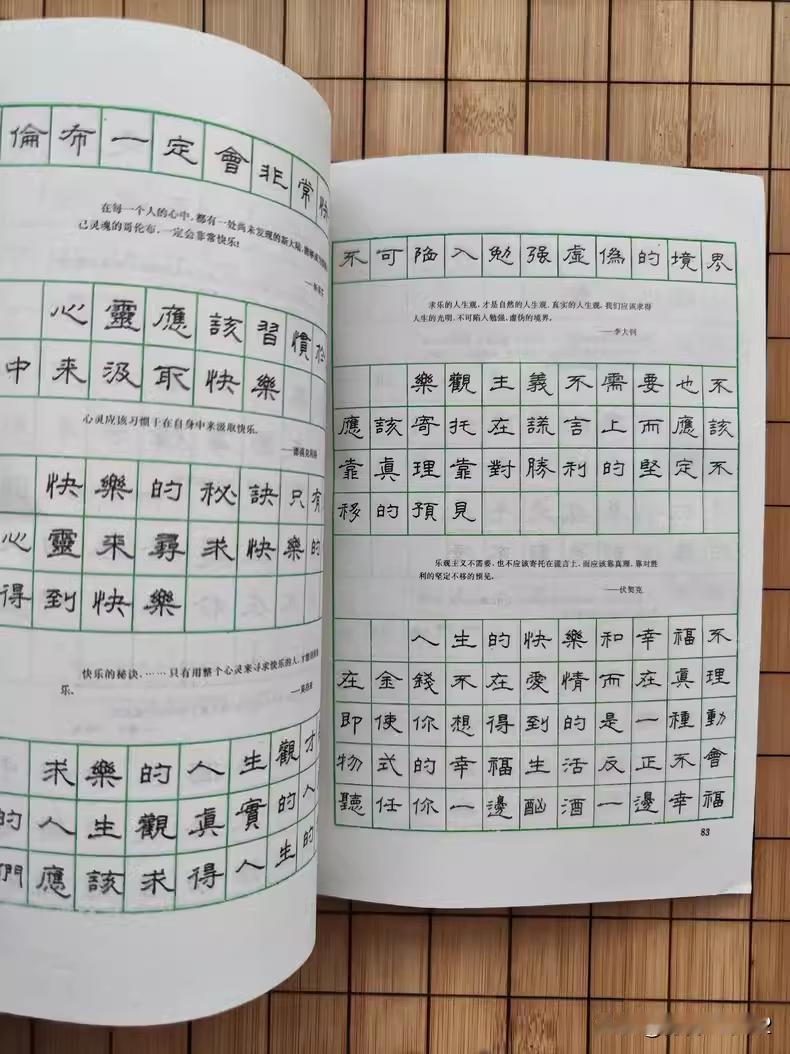 倫布一定會非常快
在每一个人的心中，都有一处尚未发现的新大陆
己灵魂的哥伦布，一定会非常快乐！
心靈應該習慣於
中来汲取快樂
心灵应该习惯于在自身中来汲取快乐。
——德谟克利特
快樂的秘訣只有
心靈來尋求快樂的
得到快樂
快乐的秘诀，……只有用整个心灵来寻求快乐的人，才
乐。
求樂的人生觀才
的人生觀真實的人
們應該求得人生的
不可陷入勉强虛偽的境界
求乐的人生观，才是自然的人生观、真实的人生观，我们应该求得
人生的光明，不可陷入勉强、虚伪的境界。
——李大钊
樂觀主義不需要也不
應該寄托在謊言上而應該
靠真理靠對勝利的堅定不
移的預見
乐观主义不需要，也不应该寄托在谎言上，而应该靠真理，靠对胜
利的坚定不移的预见。
——伏契克
人生的快樂和幸福不
在金錢不在愛情而在真理
即使你想得到的是一種動
物式的幸福生活反正不會
聽任你一邊酗酒一邊幸福
83